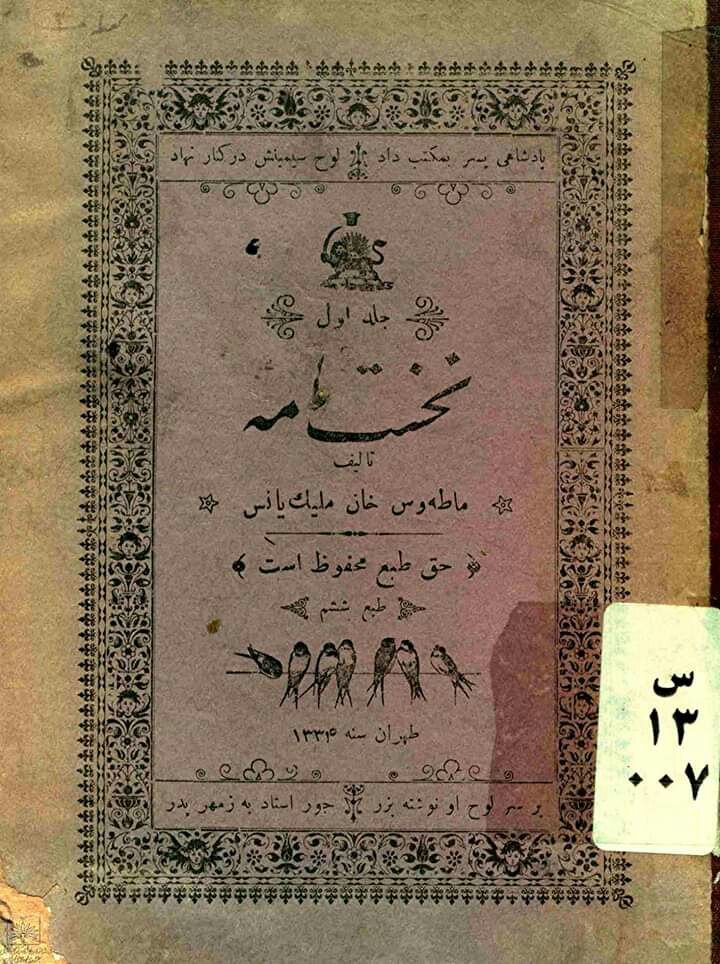 پادشاهی پسر بمکتب داد لوح سیمینش در کنار نهاد
جلد اول
نخستنامه
تالیف
ماطه‌وس خان ملیک‌یانس
حق طبع محفوظ است
طبع ششم
طهران سنه ۱۳۳۴
بر سر لوح او نوشته بزر جور استاد به زمهر پدر
س
۱۳
۰۰۷